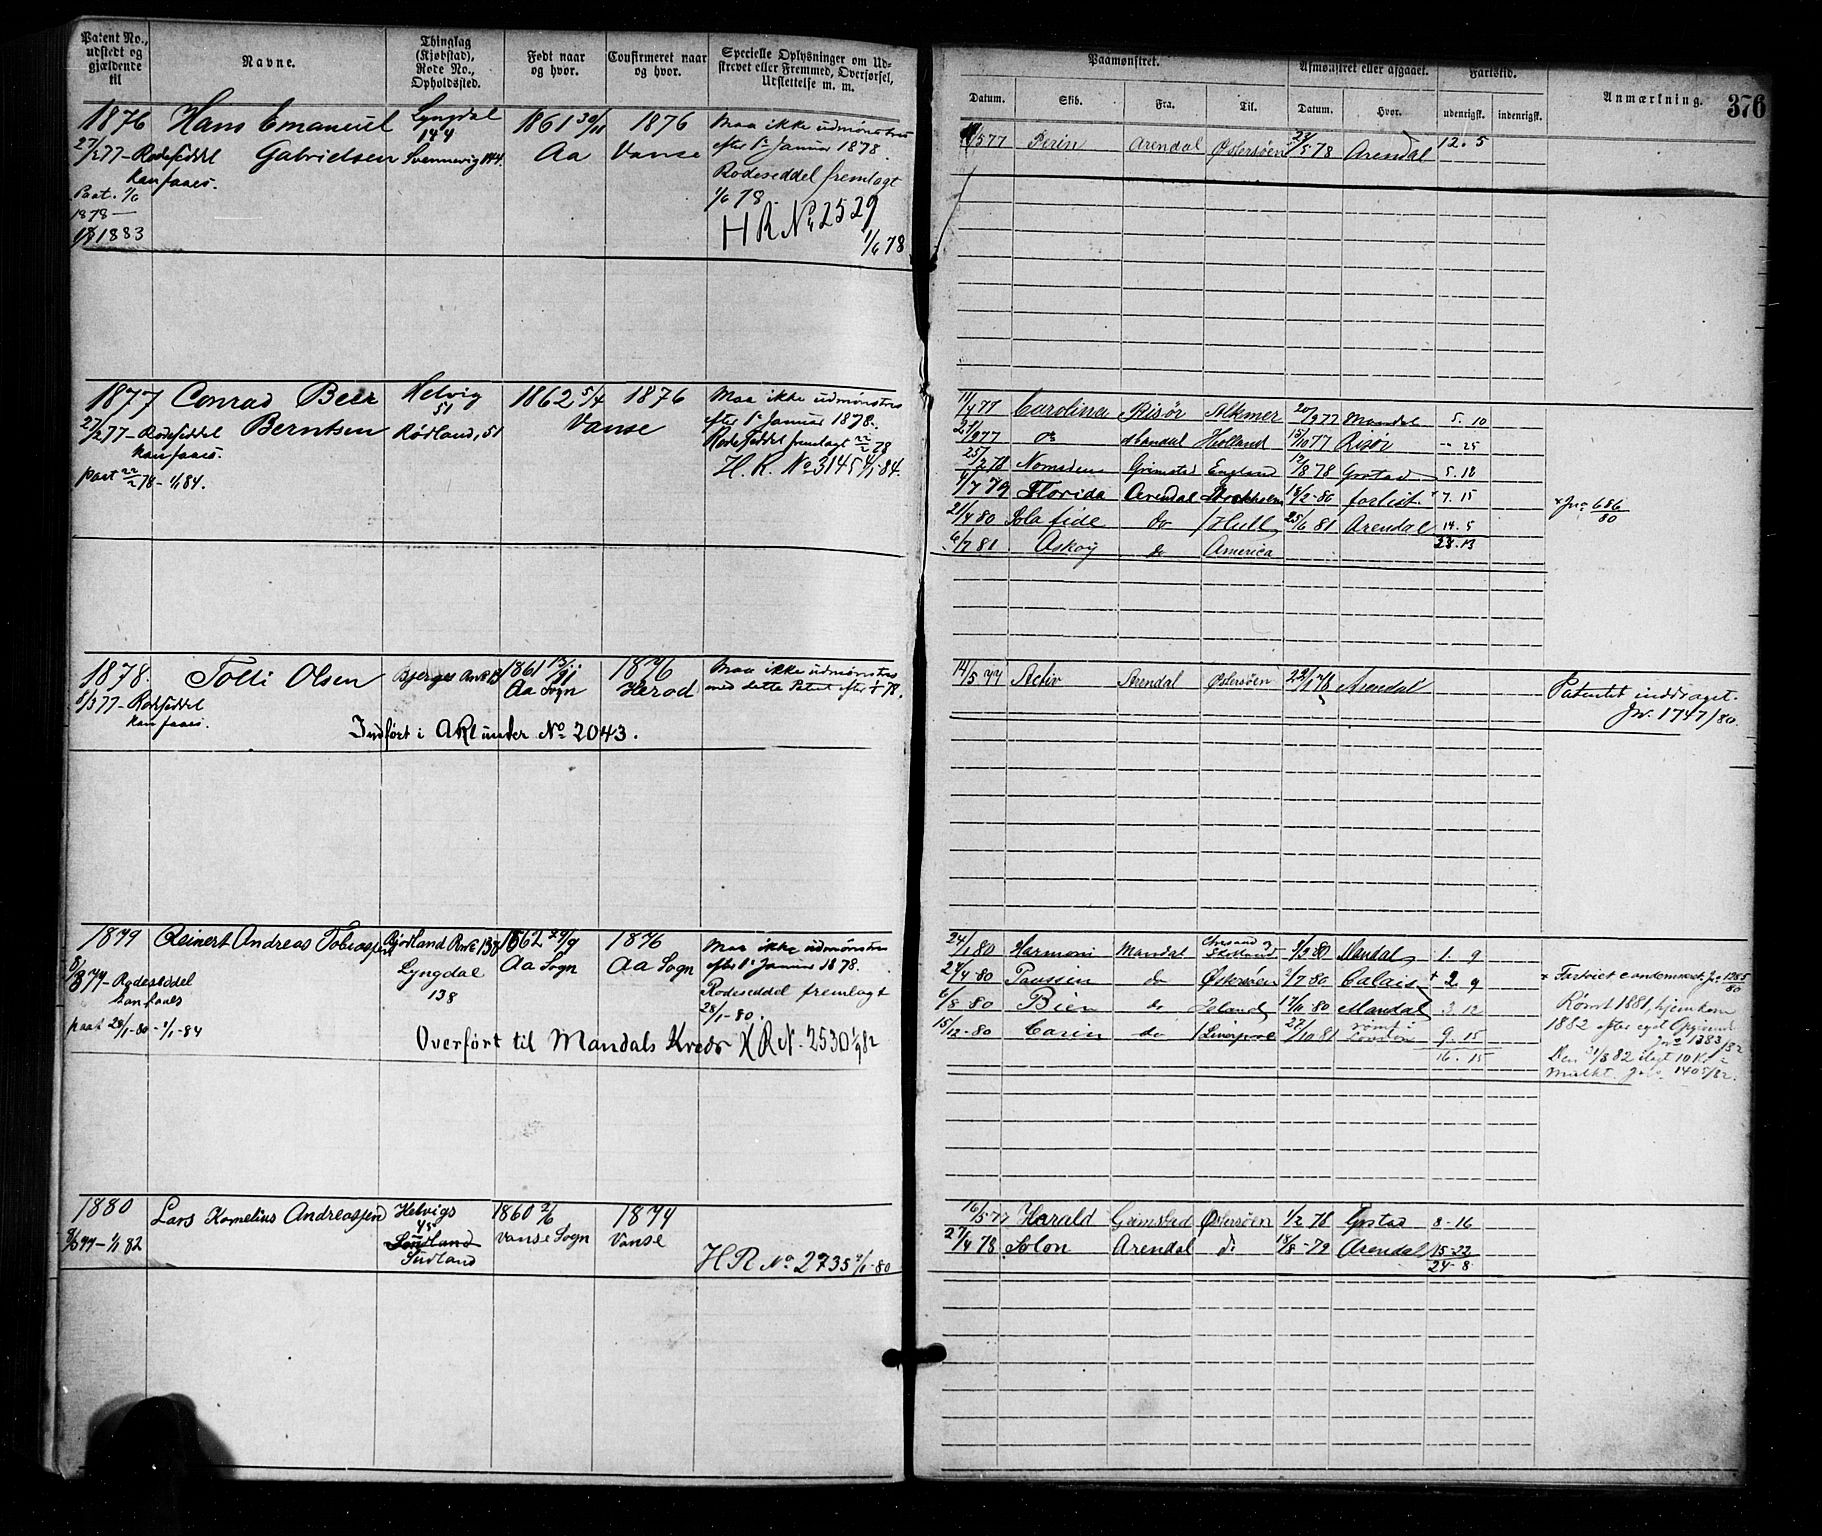 Patent No., udstedt og gjældende til
Navne.
Thinglag (Kjøbstad), Rode No., Opholdssted.
Født naar og hvor.
Confirmeret naar og hvor.
Specielle Oplysninger om Udstrevet eller Fremmed, Overførsel, Udslettelse m. m.
Paamønstret.
Afmønstret eller afgaaet.
Fartstid.
Anmærkning.
376
Datum.
Skib.
Fra.
Til.
Datum.
Hvor.
udenrigsk.
indenrigsk.
1876 Hans Emanuel Lyngdal 1861 30/11 1876 Maa ikke udmønstres
27/2 77 - Rodeseddel Gabrielsen 144 Svennevig 144. Aa Vanse efter 1ste Januar 1878.
kan faaes. Rodeseddel fremlagt
Paat. 1/6 1/6 78.
1878 - HR No 2529
1/1 1883 1/6 78
/5 77 Arendal Østersøen /5 78 Arendal 12. 5
1877 Conrad Beer Helvig 1862 5/4 1876 Maa ikke udmønstres
27/2 77 - Rodeseddel Berntsen 51 Rødland, 51 Vanse efter 1ste Januar 1878.
kan faaes. Rodeseddel fremlagt 22/2 78
paat 22/2 78 - 1/1 84. H. R. No 3145 1/1-84.
11/4 77 Carolina Risør Alkmer /9 77 Mandal 5. 10
21/9 77 do Mandal Holland 15/10 77 Risør " 25
25/2 78 Grimstad England 12/8 78 Grstad 5. 18
/7 79 Florida Arendal Stockholm 14/2-80 forlist. + 7. 15 + Jnr 686/80
21/4 80 Sola fide do Hull 25/6 81 Arendal 14. 5
6/7 81 Askøy do America 28. 13
1878. Tolli Olsen Bjerges 1861 13/11 1876 Maa ikke udmønstres
/3 77 - Rodeseddel Aa Sogn Herad med dette Patent efter 1/1 78.
kan faaes. Indført i ARl under No 2043.
14/5 77 Activ Arendal Østersøen 22/1 78 Arendal Patentet inddraget.
Jnr. 1747/80.
1879 Reinert Andreas Tobiassen Bjødland Rode 138 1862 29/9 1876 Maa ikke udmønstres
8/3 77 - Rodeseddel Lyngdal Aa Sogn Aa Sogn efter 1ste Januar 1878.
kan faaes 138 Rodeseddel fremlagt
paat 28/1-80 - 1/1-84 28/1-80.
Overført til Mandals Kreds HR N. 2530 1/9 82
24/1 80 Harmoni Mandal /3 80 Mandal 1. 9
27/4-80 do Østersøen /7-80 Calais + 2. 9
6/8-80 Bien do Island 14/10-80 Mandal 3. 12 Rømt 1881, hjemkom
15/12-80 Carin do Liverpool 22/10 81 rømt i London 9. 15 1882 efter eget Opgivende
16. 15 Jnr 1383/82
Den 31/8 82 ilagt 10 Kr
Mulkt. Jnr. 1405/82.
1880 Lars Kornelius Andreassen Helvigs 1860 2/6 1874
/3 77 - 1/1 82 45 Vanse Sogn Vanse
Sudland
Sudland HR No 2735 1/1-80
16/5-77 Harald Grimstad Østersøen 1/2 78 Grstad 8-16
27/4 78 Solon Arendal do 15/8-79 Arendal 15-22
24-8